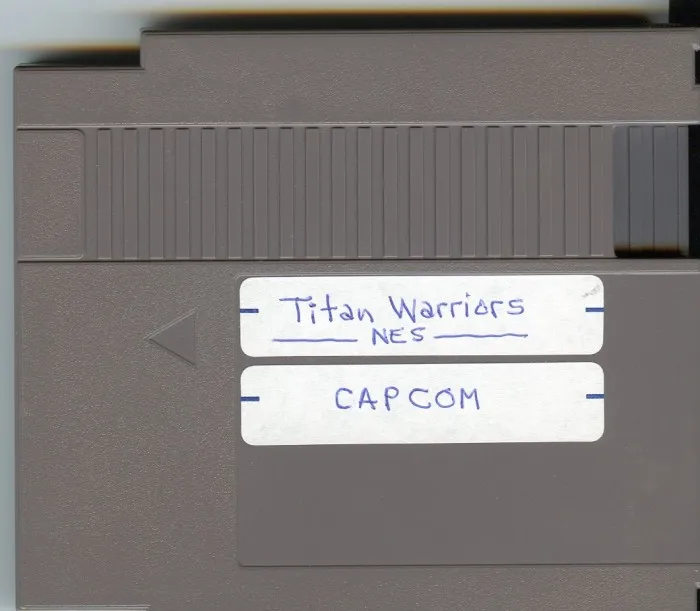 Titan Warriors
NES
CAPCOM